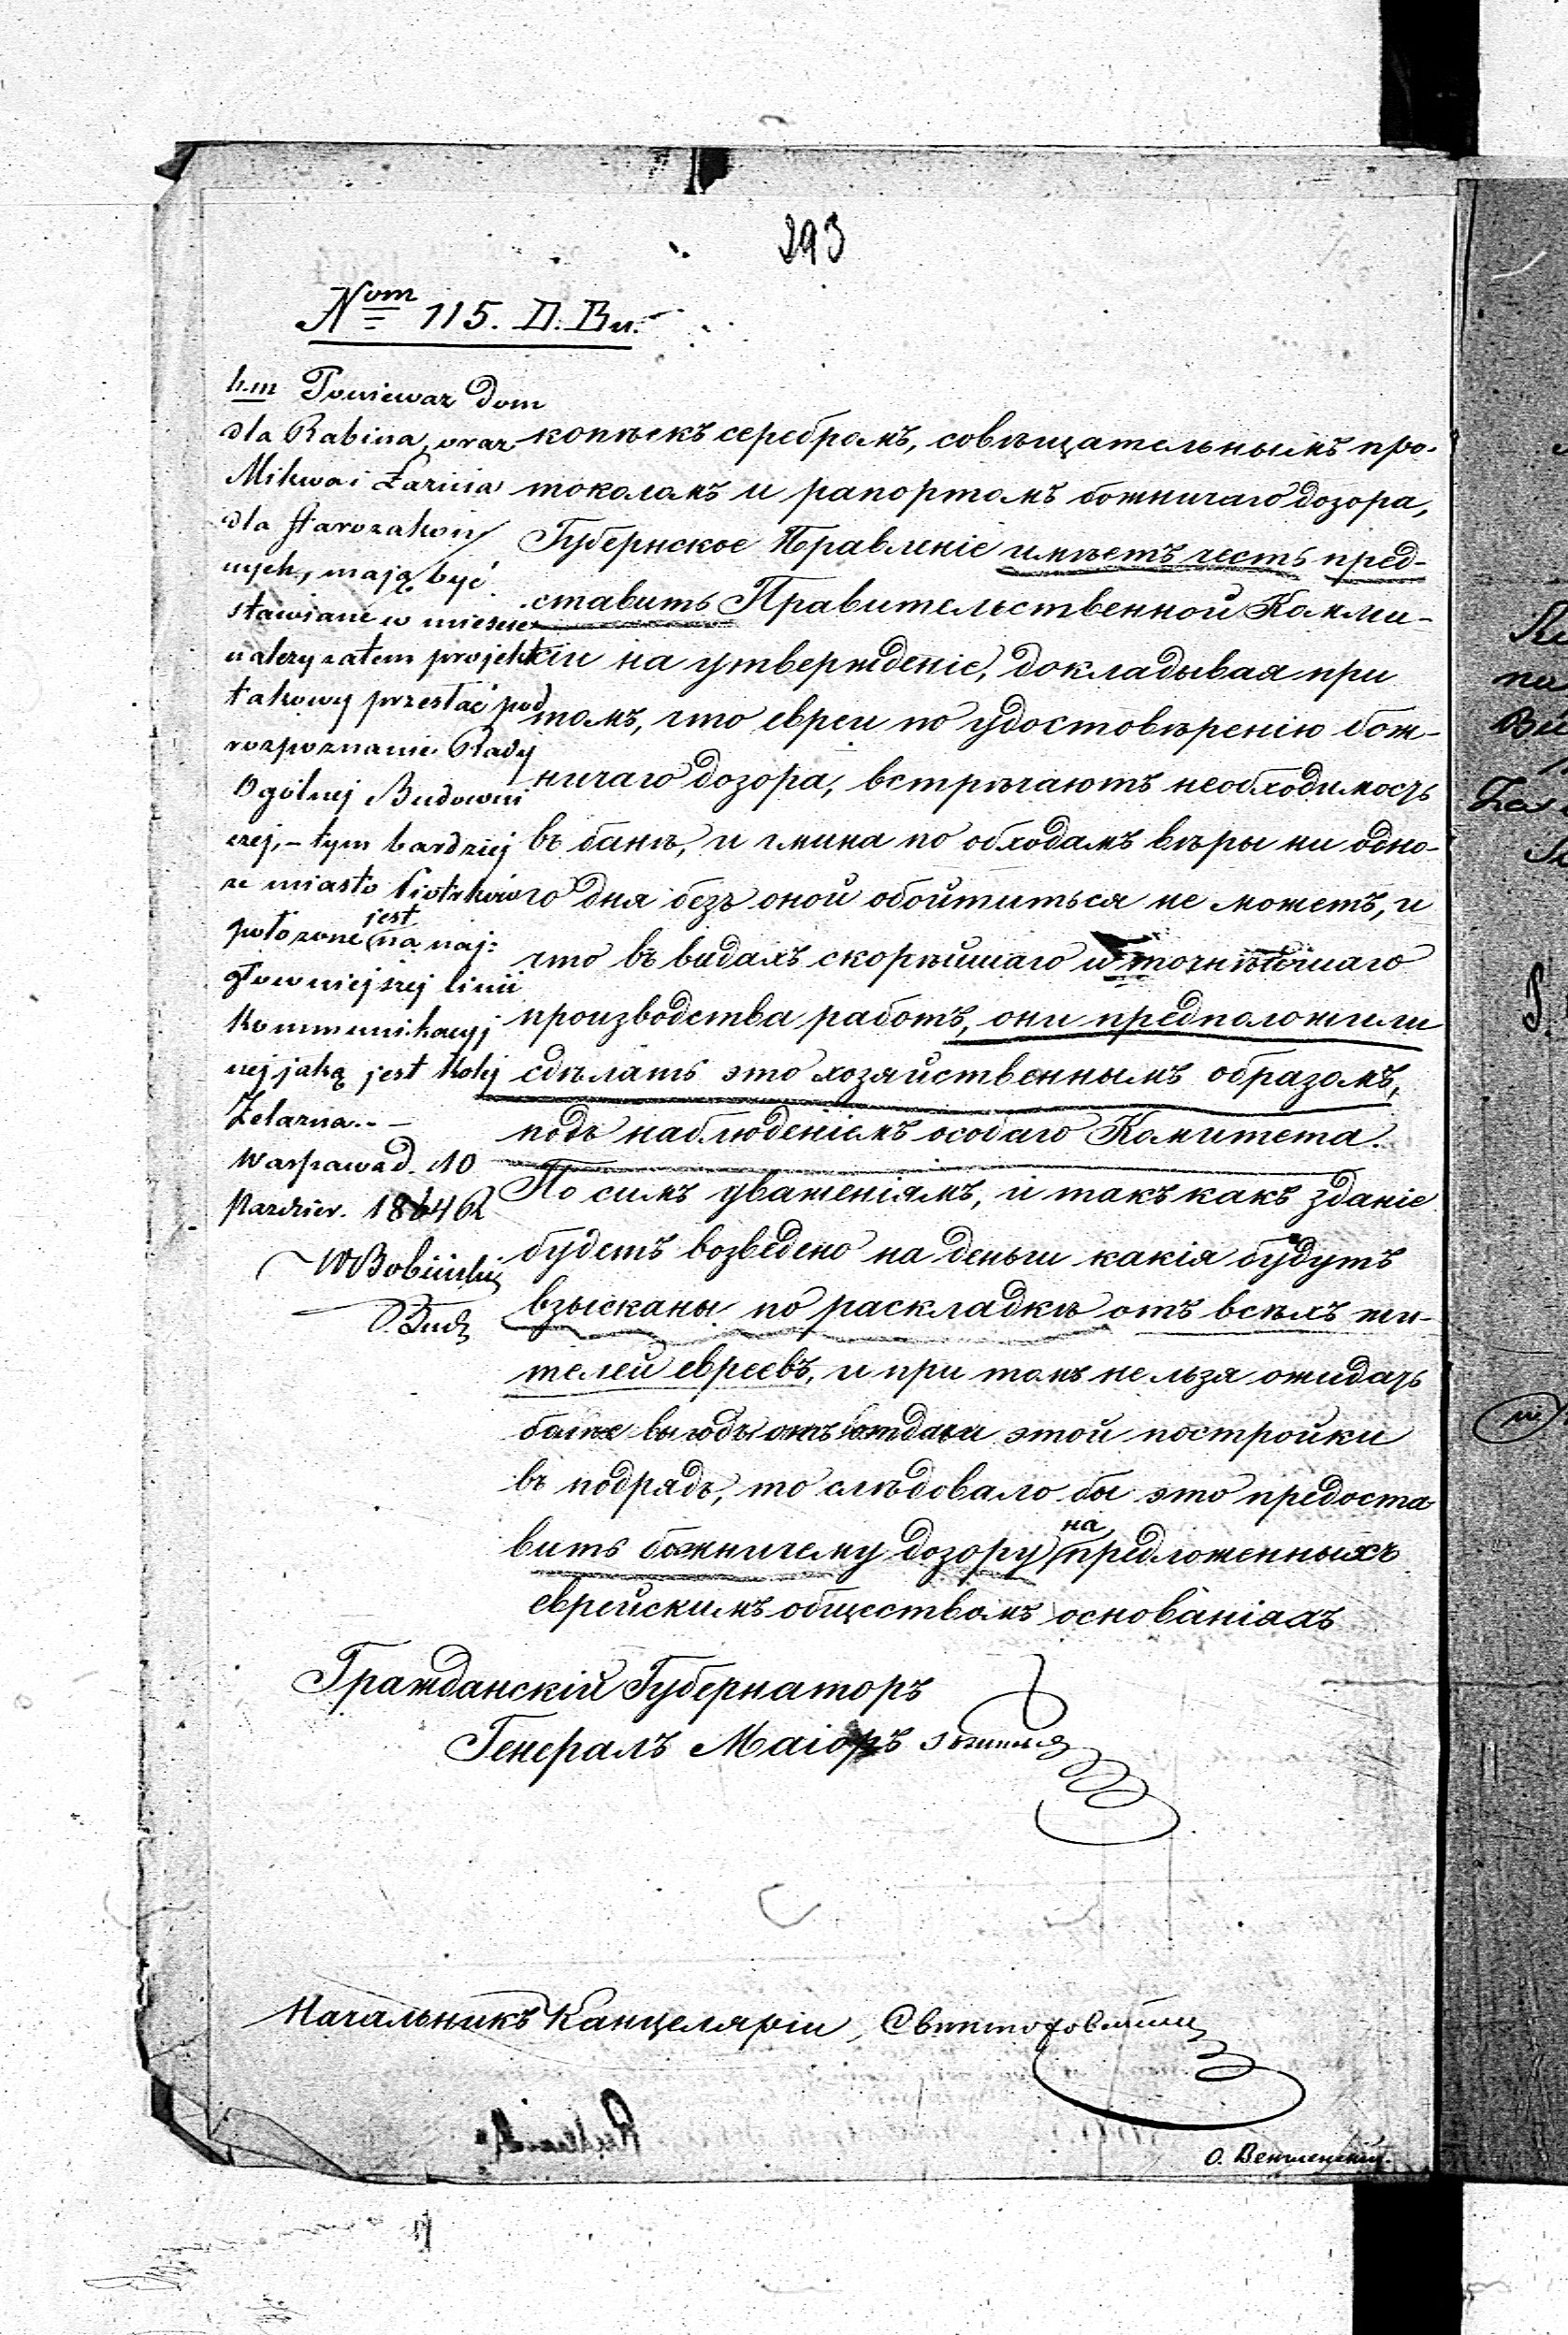 293
Nom 115. D. Bu.
hm Poniewaz dom
dla Rabina, oraz
Mikwa i Łaznia
dla starozakon
nych, mają być
stawiane w miescie
nalezy zatem projekt
takowy przesłać pod
rozpoznanie Rady
Ogólnej Budowni
czej, – tym bardziej
ze miasto Piotrków
położone jest na naj=
głowniejszej linii
Kommunikacyj
nej jaką jest Kolej
Żelazna. –
Warszawa d. 10
Pazdzier. 1864 R
WBobiński
копѣекъ серебромъ, совѣщательнымъ про-
токоломъ и рапортомъ божничаго дозора,
Губернское Правленіе имѣетъ честь пред-
ставить Правительственной Комми-
сіи на утвержденіе, докладывая при
томъ, что евреи по удостовѣренію бож-
ничаго дозора, встрѣчаютъ необходимость
въ банѣ, и гмина по обходамъ вѣры ни одно-
го дня безъ оной обойтиться не можетъ, и
что въ видахъ скорѣйшаго и точнѣйшаго
производства работъ, они предположили
сдѣлать это хозяйственнымъ образомъ,
подъ наблюденіемъ особаго Комитета.
По симъ уваженіямъ, и такъ какъ зданіе
будетъ возведено на деньги какія будутъ
взысканы по раскладкѣ отъ всѣхъ жи-
телей евреевъ, и при томъ нельзя ожидать
болѣе выгоды отъ отдачи этой постройки
въ подрядъ, то слѣдовало бы это предоста
вить божничему дозору на предложенныхъ
еврейскимъ обществомъ основаніяхъ
Гражданскій Губернаторъ
Генералъ Маіоръ
Начальникъ Канцеляріи,
О.